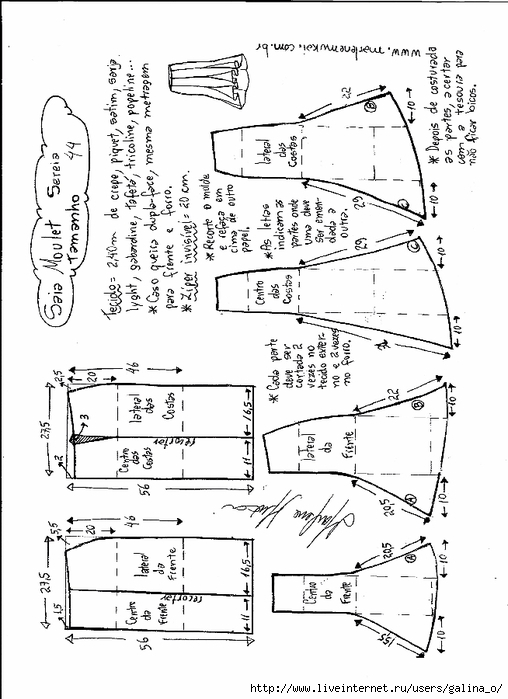 Saia Moulet Sereia
Tamanho 44
Tecido= 2,40m de crepe, piquet, satim, sarja
lyght, gabardine, tafetá, tricoline, popeline...
* Caso queira dupla-face, mesma metragem
para frente e forro.
* Zíper invisível= 20cm.
* Recorte o molde
e refaça em
cima de outro
papel.
* As letras
indicam as
partes onde
uma deve
ser emen
dada a
outra.
* Cada parte
deve ser
cortada 2
vezes no
tecido exter-
no e 2 vezes
no forro.
www.marlenemukai.com.br
* Depois de costurada
as partes, acertar
com a tesoura para
não ficar bicos.
27,5
2,5
2
20
46
3
lateral
das
Costas
Centro
das
Costas
recortar
11
16,5
56
27,5
5,5
1,5
20
46
lateral
da
Frente
Centro
da
Frente
recortar
11
16,5
56
lateral
das
Costas
22
B
29
C
10
10
Centro
das
Costas
29
C
10
10
lateral
da
Frente
22
B
20,5
A
10
10
Centro
da
Frente
20,5
A
15,5
10
10
http://www.liveinternet.ru/users/galina_o/